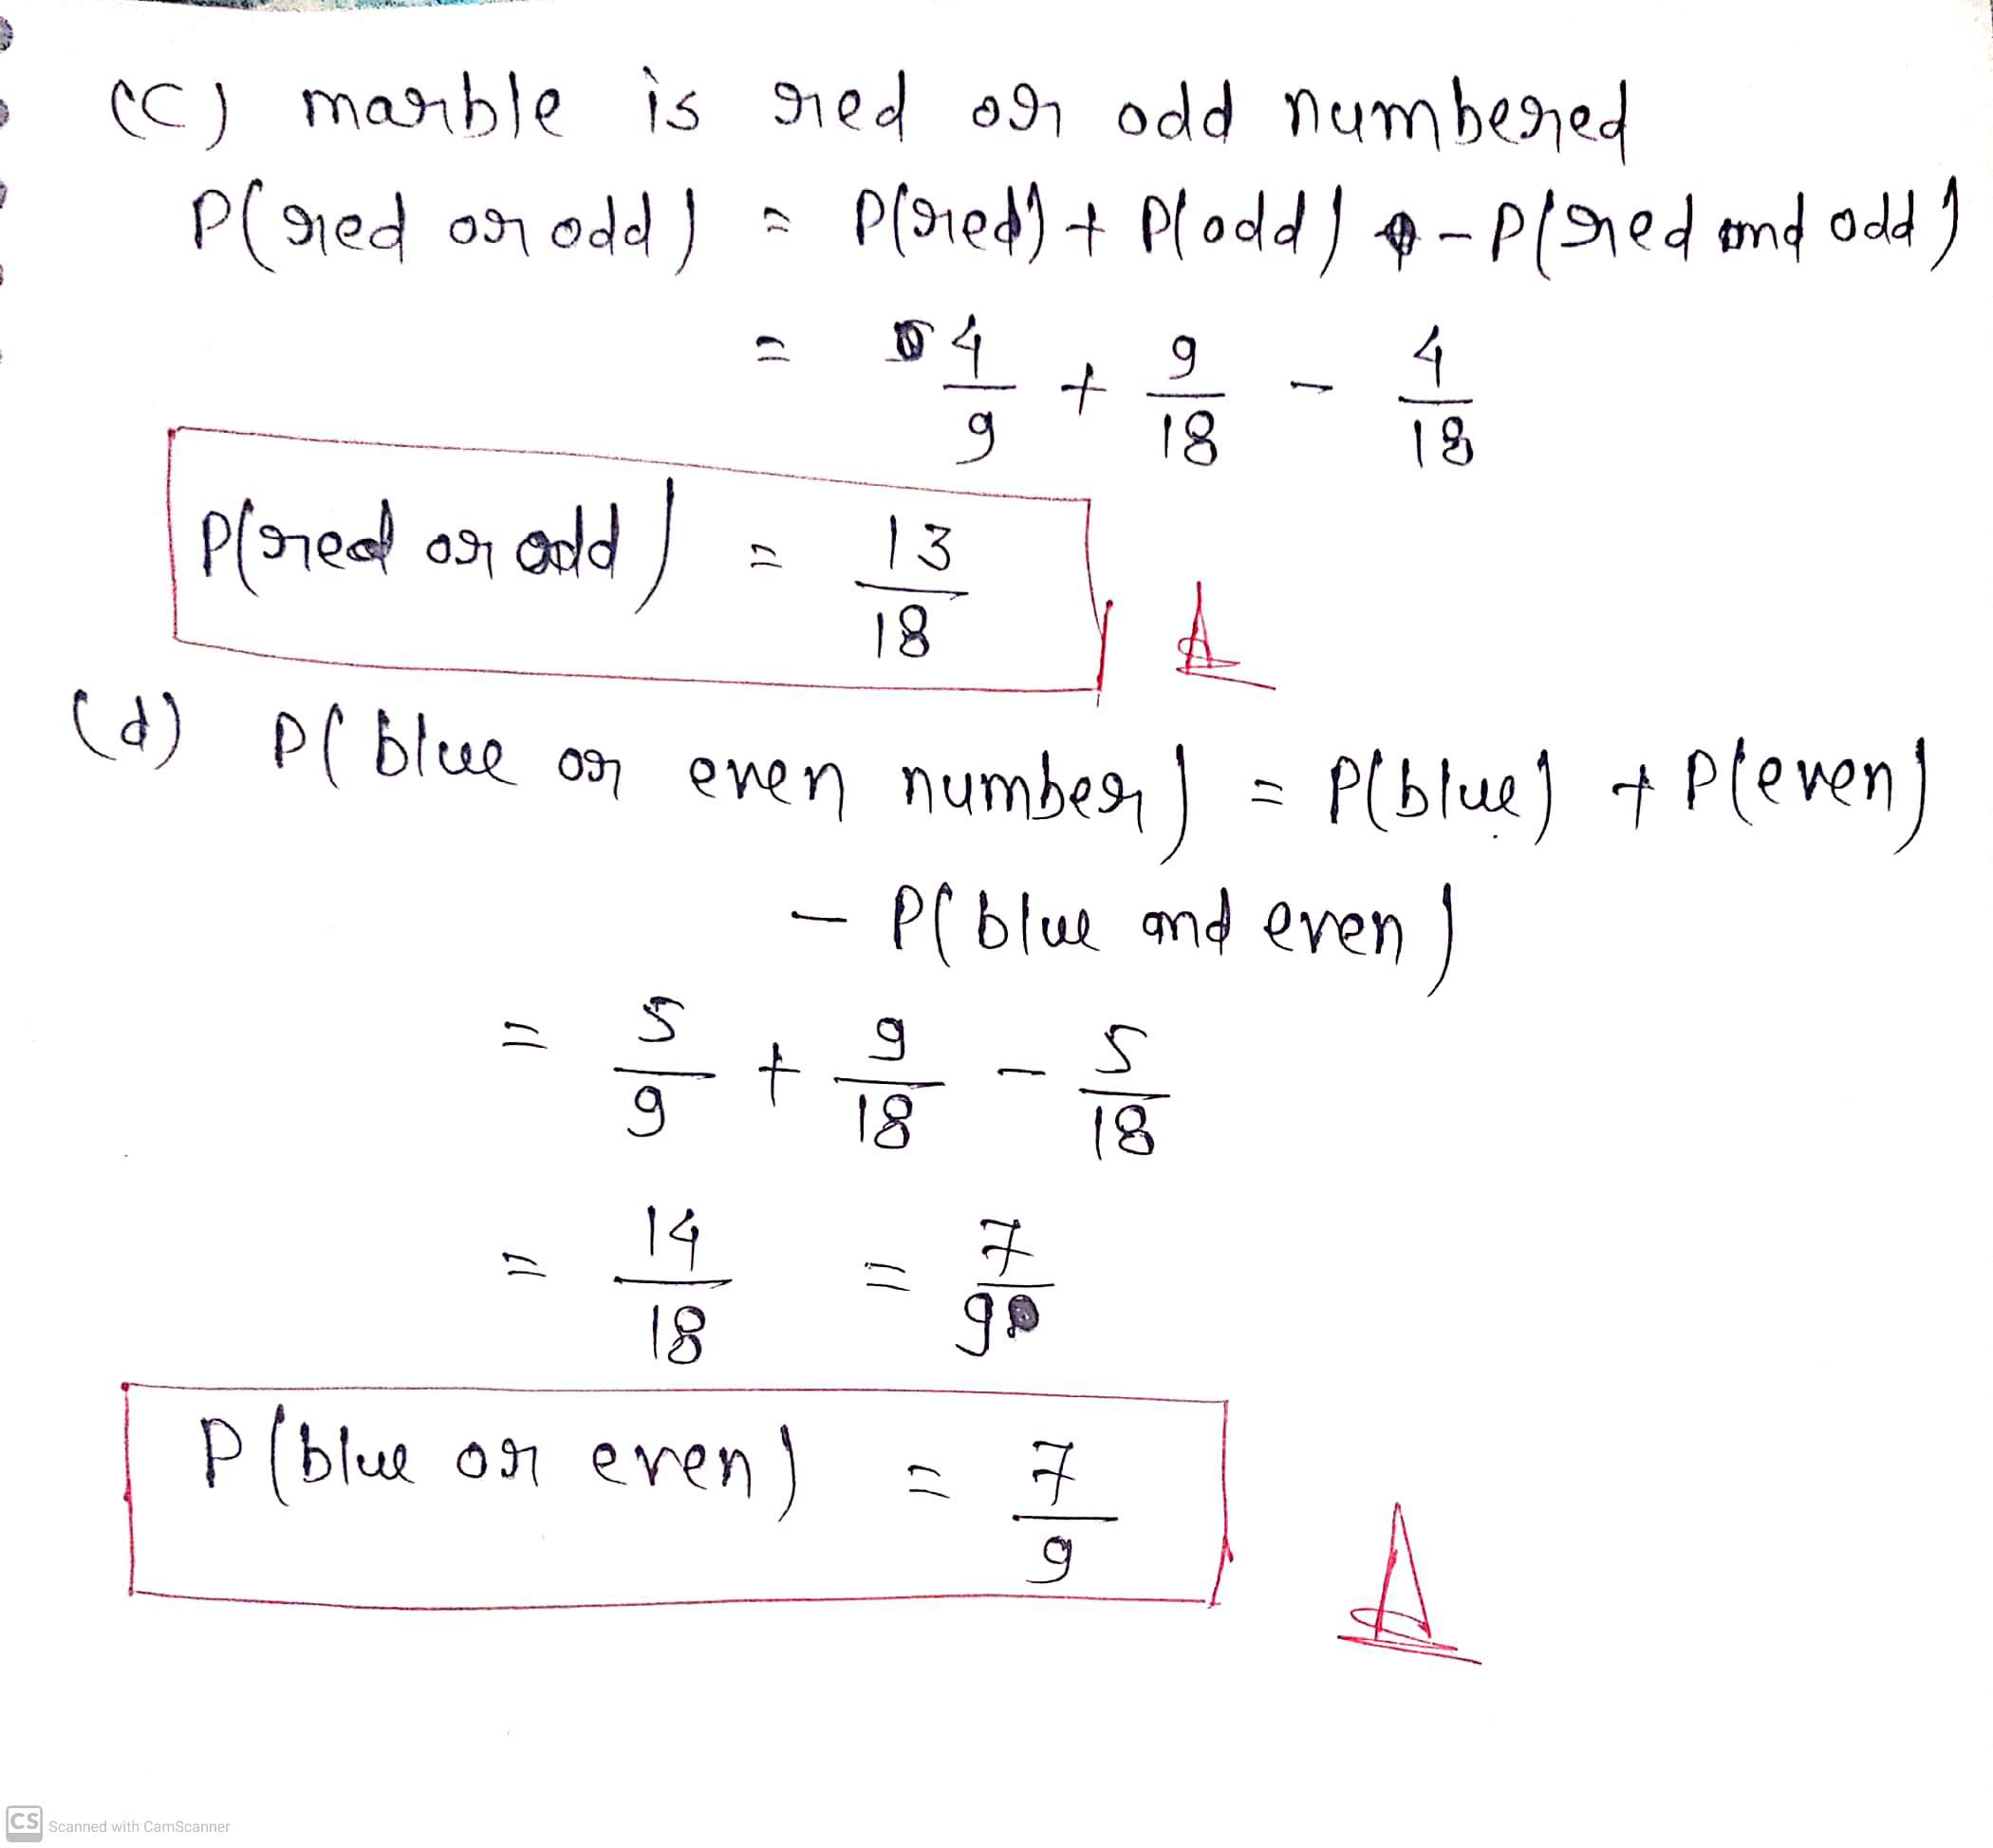 (C) marble is red or odd numbered
P(red or odd) = P(red) + P(odd) - P(red and odd)
= 4/9 + 9/18 - 4/18
P(red or odd) = 13/18
(d) P(blue or even number) = P(blue) + P(even)
- P(blue and even)
= 5/9 + 9/18 - 5/18
= 14/18 = 7/9
P(blue or even) = 7/9
CS Scanned with CamScanner